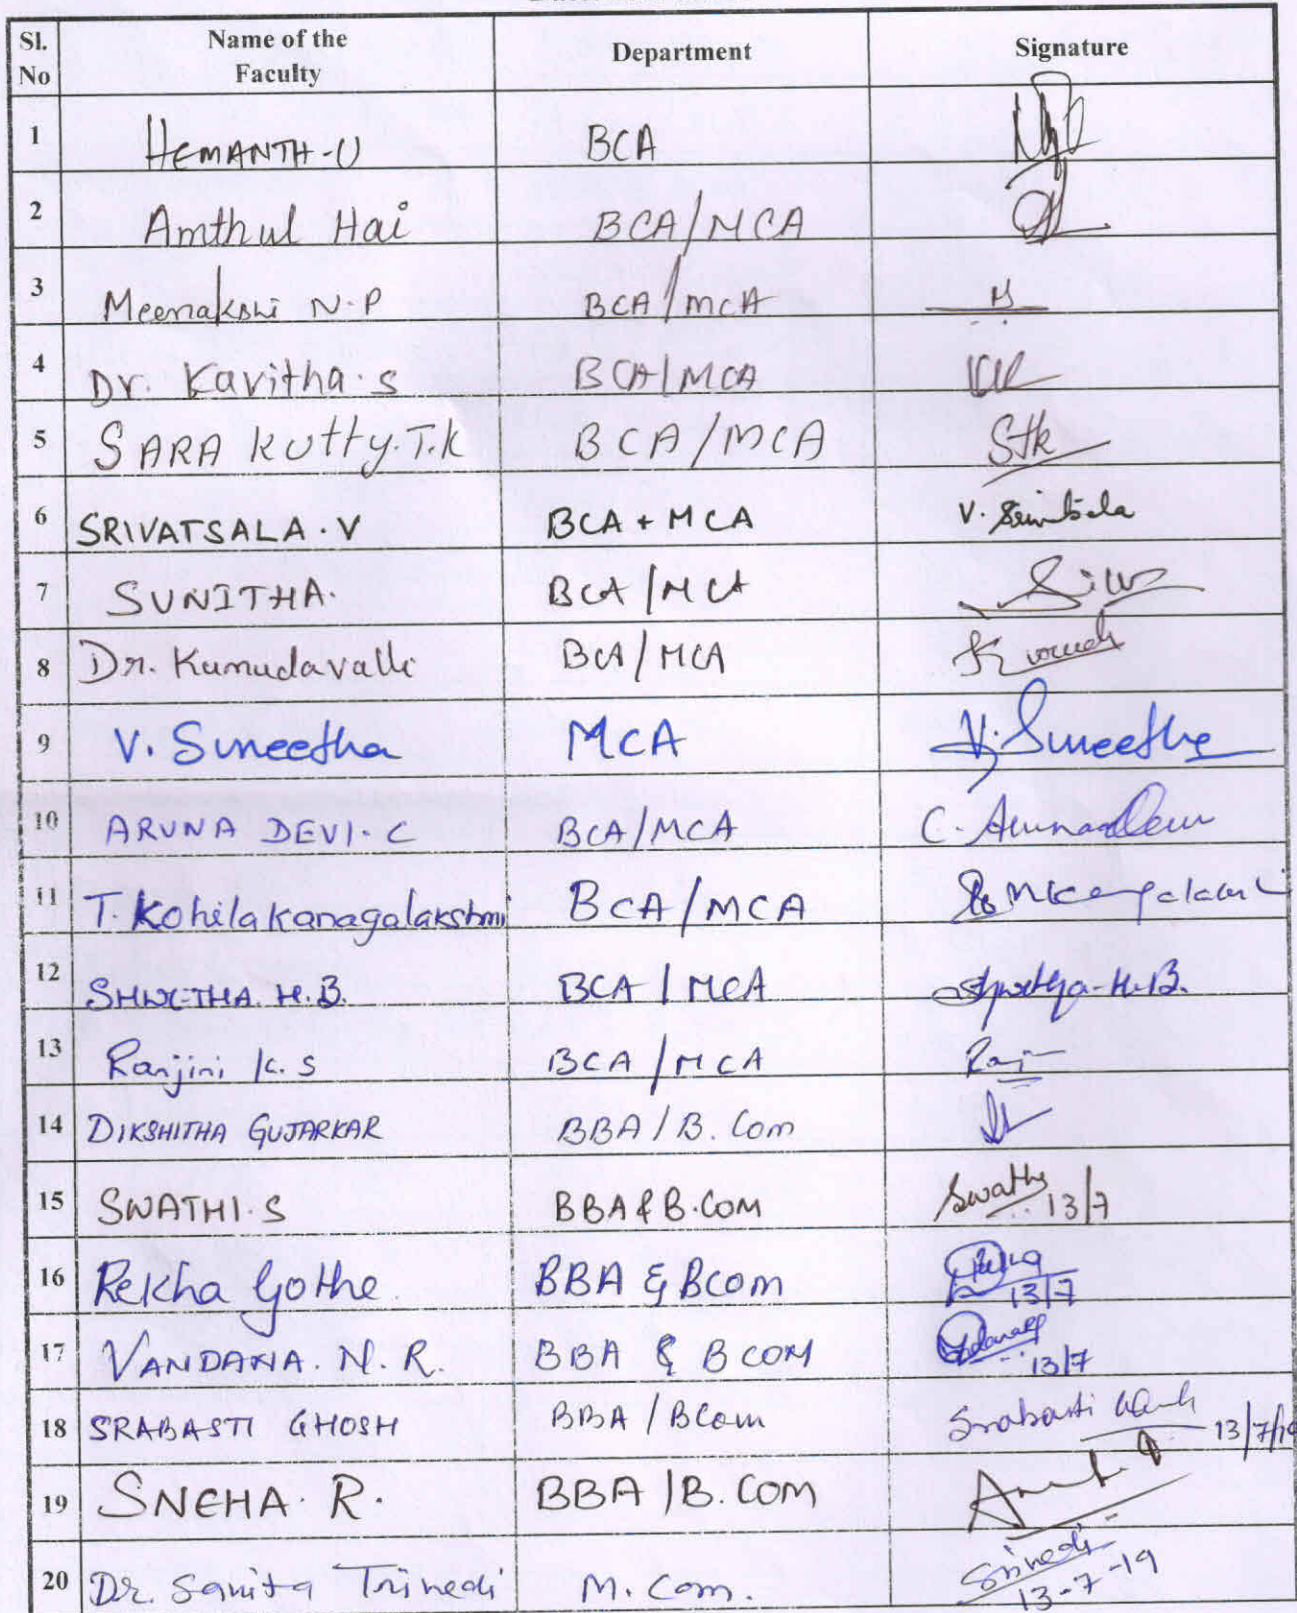 Sl. No Name of the Faculty Department Signature
1 HEMANTH-U BCA
2 Amthul Hai BCA/MCA
3 Meenakshi N.P BCA/MCA
4 Dr. Kavitha.s BCA/MCA
5 SARA Kutty.T.K BCA/MCA Stk
6 SRIVATSALA.V BCA + MCA V. Srivatsala
7 SUNITHA. BCA/MCA
8 Dr. Kumudavalli BCA/MCA
9 V. Suneetha MCA V. Suneetha
10 ARUNA DEVI.C BCA/MCA C. Aruna Devi
11 T. Kohilakanagalakshmi BCA/MCA
12 SHWETHA.H.B. BCA/MCA Shwetha.H.B.
13 Ranjini K.S BCA/MCA Ranj
14 DIKSHITHA GUJARKAR BBA/B.Com
15 SWATHI.S BBA & B.COM Swathi 13/7
16 Rekha Gothe BBA & BCom Rekha 13/7
17 VANDANA.N.R. BBA & BCOM 13/7
18 SRABASTI GHOSH BBA/BCom Srabasti Ghosh 13/7/19
19 SNEHA.R. BBA/B.COM
20 Dr. Sanita Trivedi M.Com. STrivedi 13-7-19